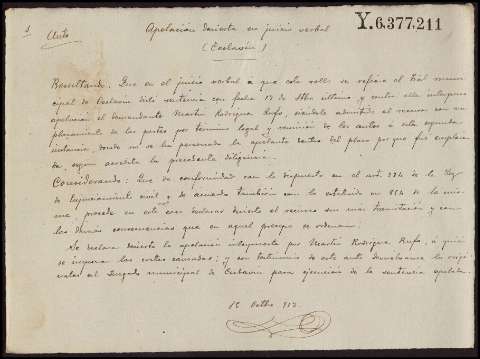 1 Auto Apelación desierta en juicio verbal Y.6.377.211
(Ceclavín)
Resultando: Que en el juicio verbal a que este rollo se refiere el Tral muni-
cipal de Ceclavín dictó sentencia con fecha 17 de Stbre último y contra ella interpuso
apelación el demandante Martín Rodriguez Rufo, siéndole admitido el recurso con em-
plazamiento de las partes por término legal y remisión de los autos a esta segunda
instancia, donde no se ha personado la apelante dentro del plazo por que fué emplaza-
da, según acredita la precedente diligencia.
Considerando: Que de conformidad con lo dispuesto en el art. de la Ley
de Enjuiciamiento civil y de acuerdo también con lo estatuido en 864 de la mis-
ma procede en este caso declarar desierto el recurso sin más tramitación y con
las demás consecuencias que en aquel precepto se ordenan:
Se declara desierta la apelación interpuesta por Martín Rodriguez Rufo, á quien
se imponen las costas causadas; y con testimonio de este auto devuélvanse los origi-
nales al Juzgado municipal de Ceclavín para ejecución de la sentencia apelada.
16 Octbre 912.